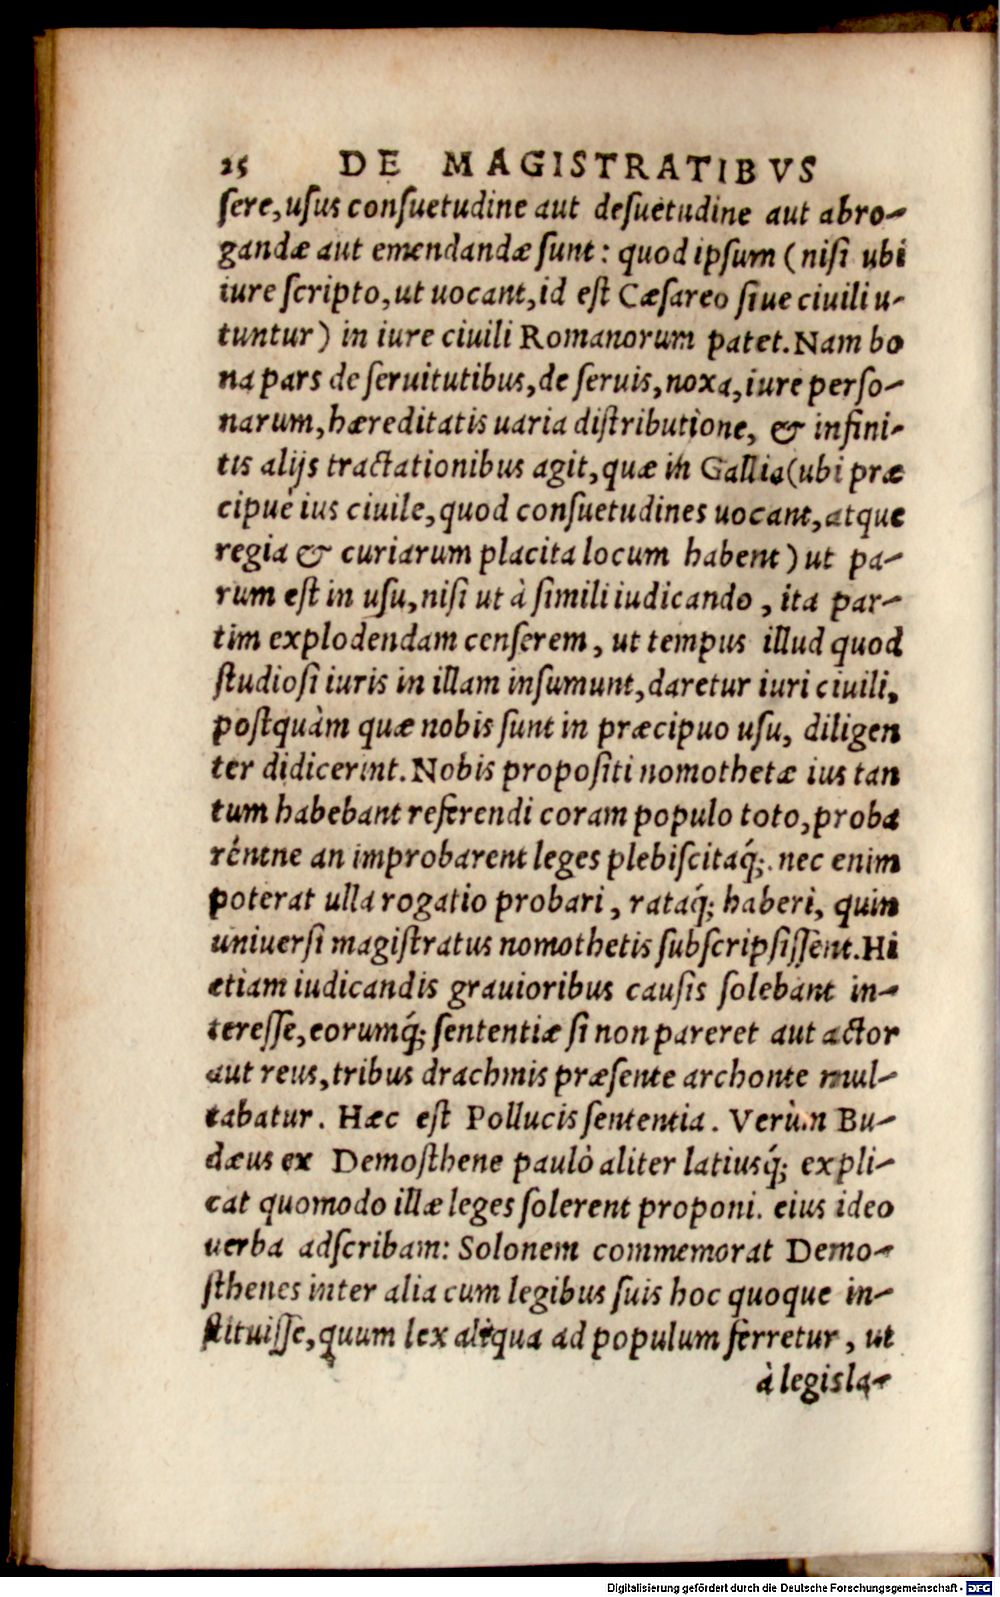 25 DE MAGISTRATIBVS
sere, usus consuetudine aut desuetudine aut abro-
gandæ aut emendandæ sunt: quod ipsum (nisi ubi
iure scripto, ut uocant, id est Cæsareo siue ciuili u-
tuntur) in iure ciuili Romanorum patet. Nam bo
na pars de seruitutibus, de seruis, noxa, iure perso-
narum, hæreditatis uaria distributione, & infini-
tis alijs tractationibus agit, quæ in Gallia (ubi præ
cipuè ius ciuile, quod consuetudines uocant, atque
regia & curiarum placita locum habent) ut pa-
rum est in usu, nisi ut à simili iudicando, ita par-
tim explodendam censerem, ut tempus illud quod
studiosi iuris in illam insumunt, daretur iuri ciuili,
postquàm quæ nobis sunt in præcipuo usu, diligen
ter didicerint. Nobis propositi nomothetæ ius tan
tum habebant referendi coram populo toto, proba
réntne an improbarent leges plebiscitaq́;. nec enim
poterat ulla rogatio probari, rataq́; haberi, quin
uniuersi magistratus nomothetis subscripsissent. Hi
etiam iudicandis grauioribus causis solebant in-
teresse, eorumq́; sententiæ si non pareret aut actor
aut reus, tribus drachmis præsente archonte mul-
tabatur. Hæc est Pollucis sententia. Verùm Bu-
dæus ex Demosthene paulò aliter latiusq́; expli-
cat quomodo illæ leges solerent proponi. eius ideo
uerba adscribam: Solonem commemorat Demo-
sthenes inter alia cum legibus suis hoc quoque in-
stituisse, quum lex aliqua ad populum ferretur, ut
à legisla-
Digitalisierung gefördert durch die Deutsche Forschungsgemeinschaft - DFG